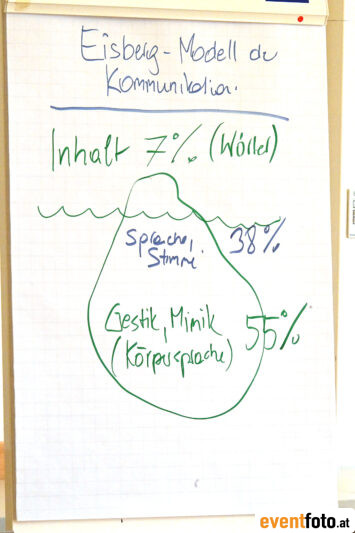 Eisberg-Modell der
Kommunikation.
Inhalt 7% (Wörter)
Sprache,
Stimme
38%
Gestik, Mimik
(Körpersprache)
55%
eventfoto.at